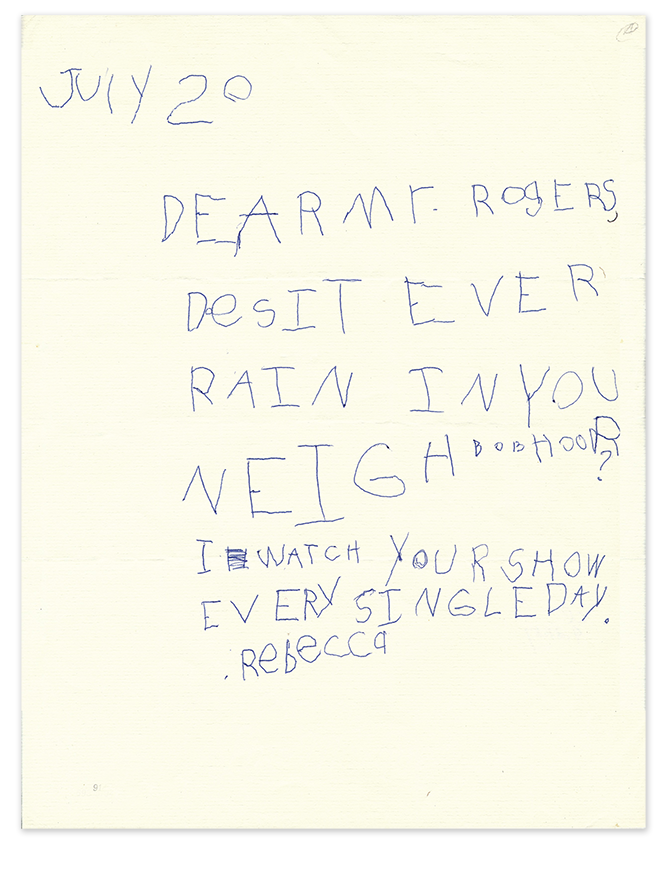 JUlY 20
DEAR Mr. ROgERS,
DesIT EVER
RAIN IN YOUR
NEIGHBOBHOOD?
I WATCH YOUR SHOW
EVERY SINGLE DAY.
.Rebecca